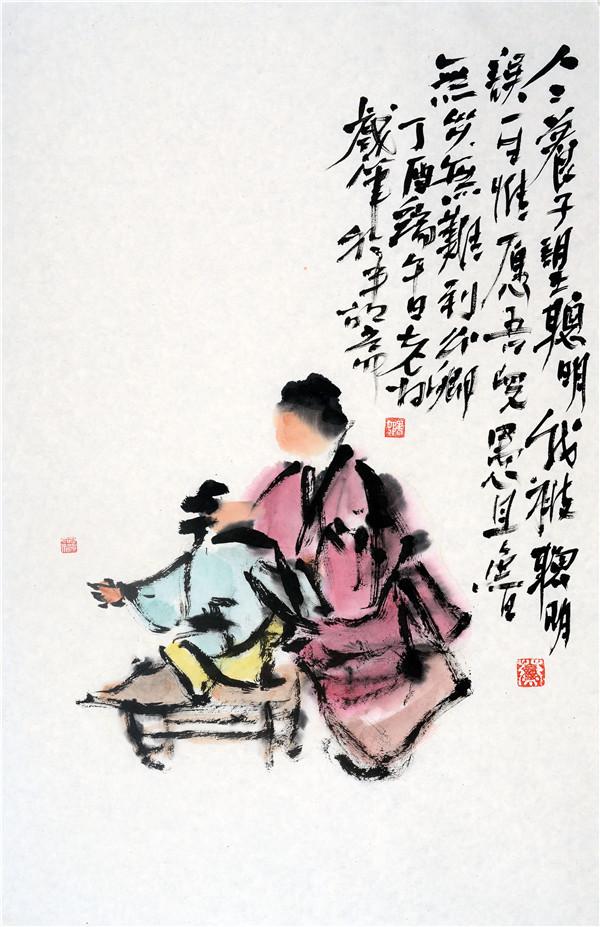 人〻養子望聰明我被聰明
誤一生惟愿吾兒愚且魯
無災無難到公卿
丁酉端午日老村
戲筆於半